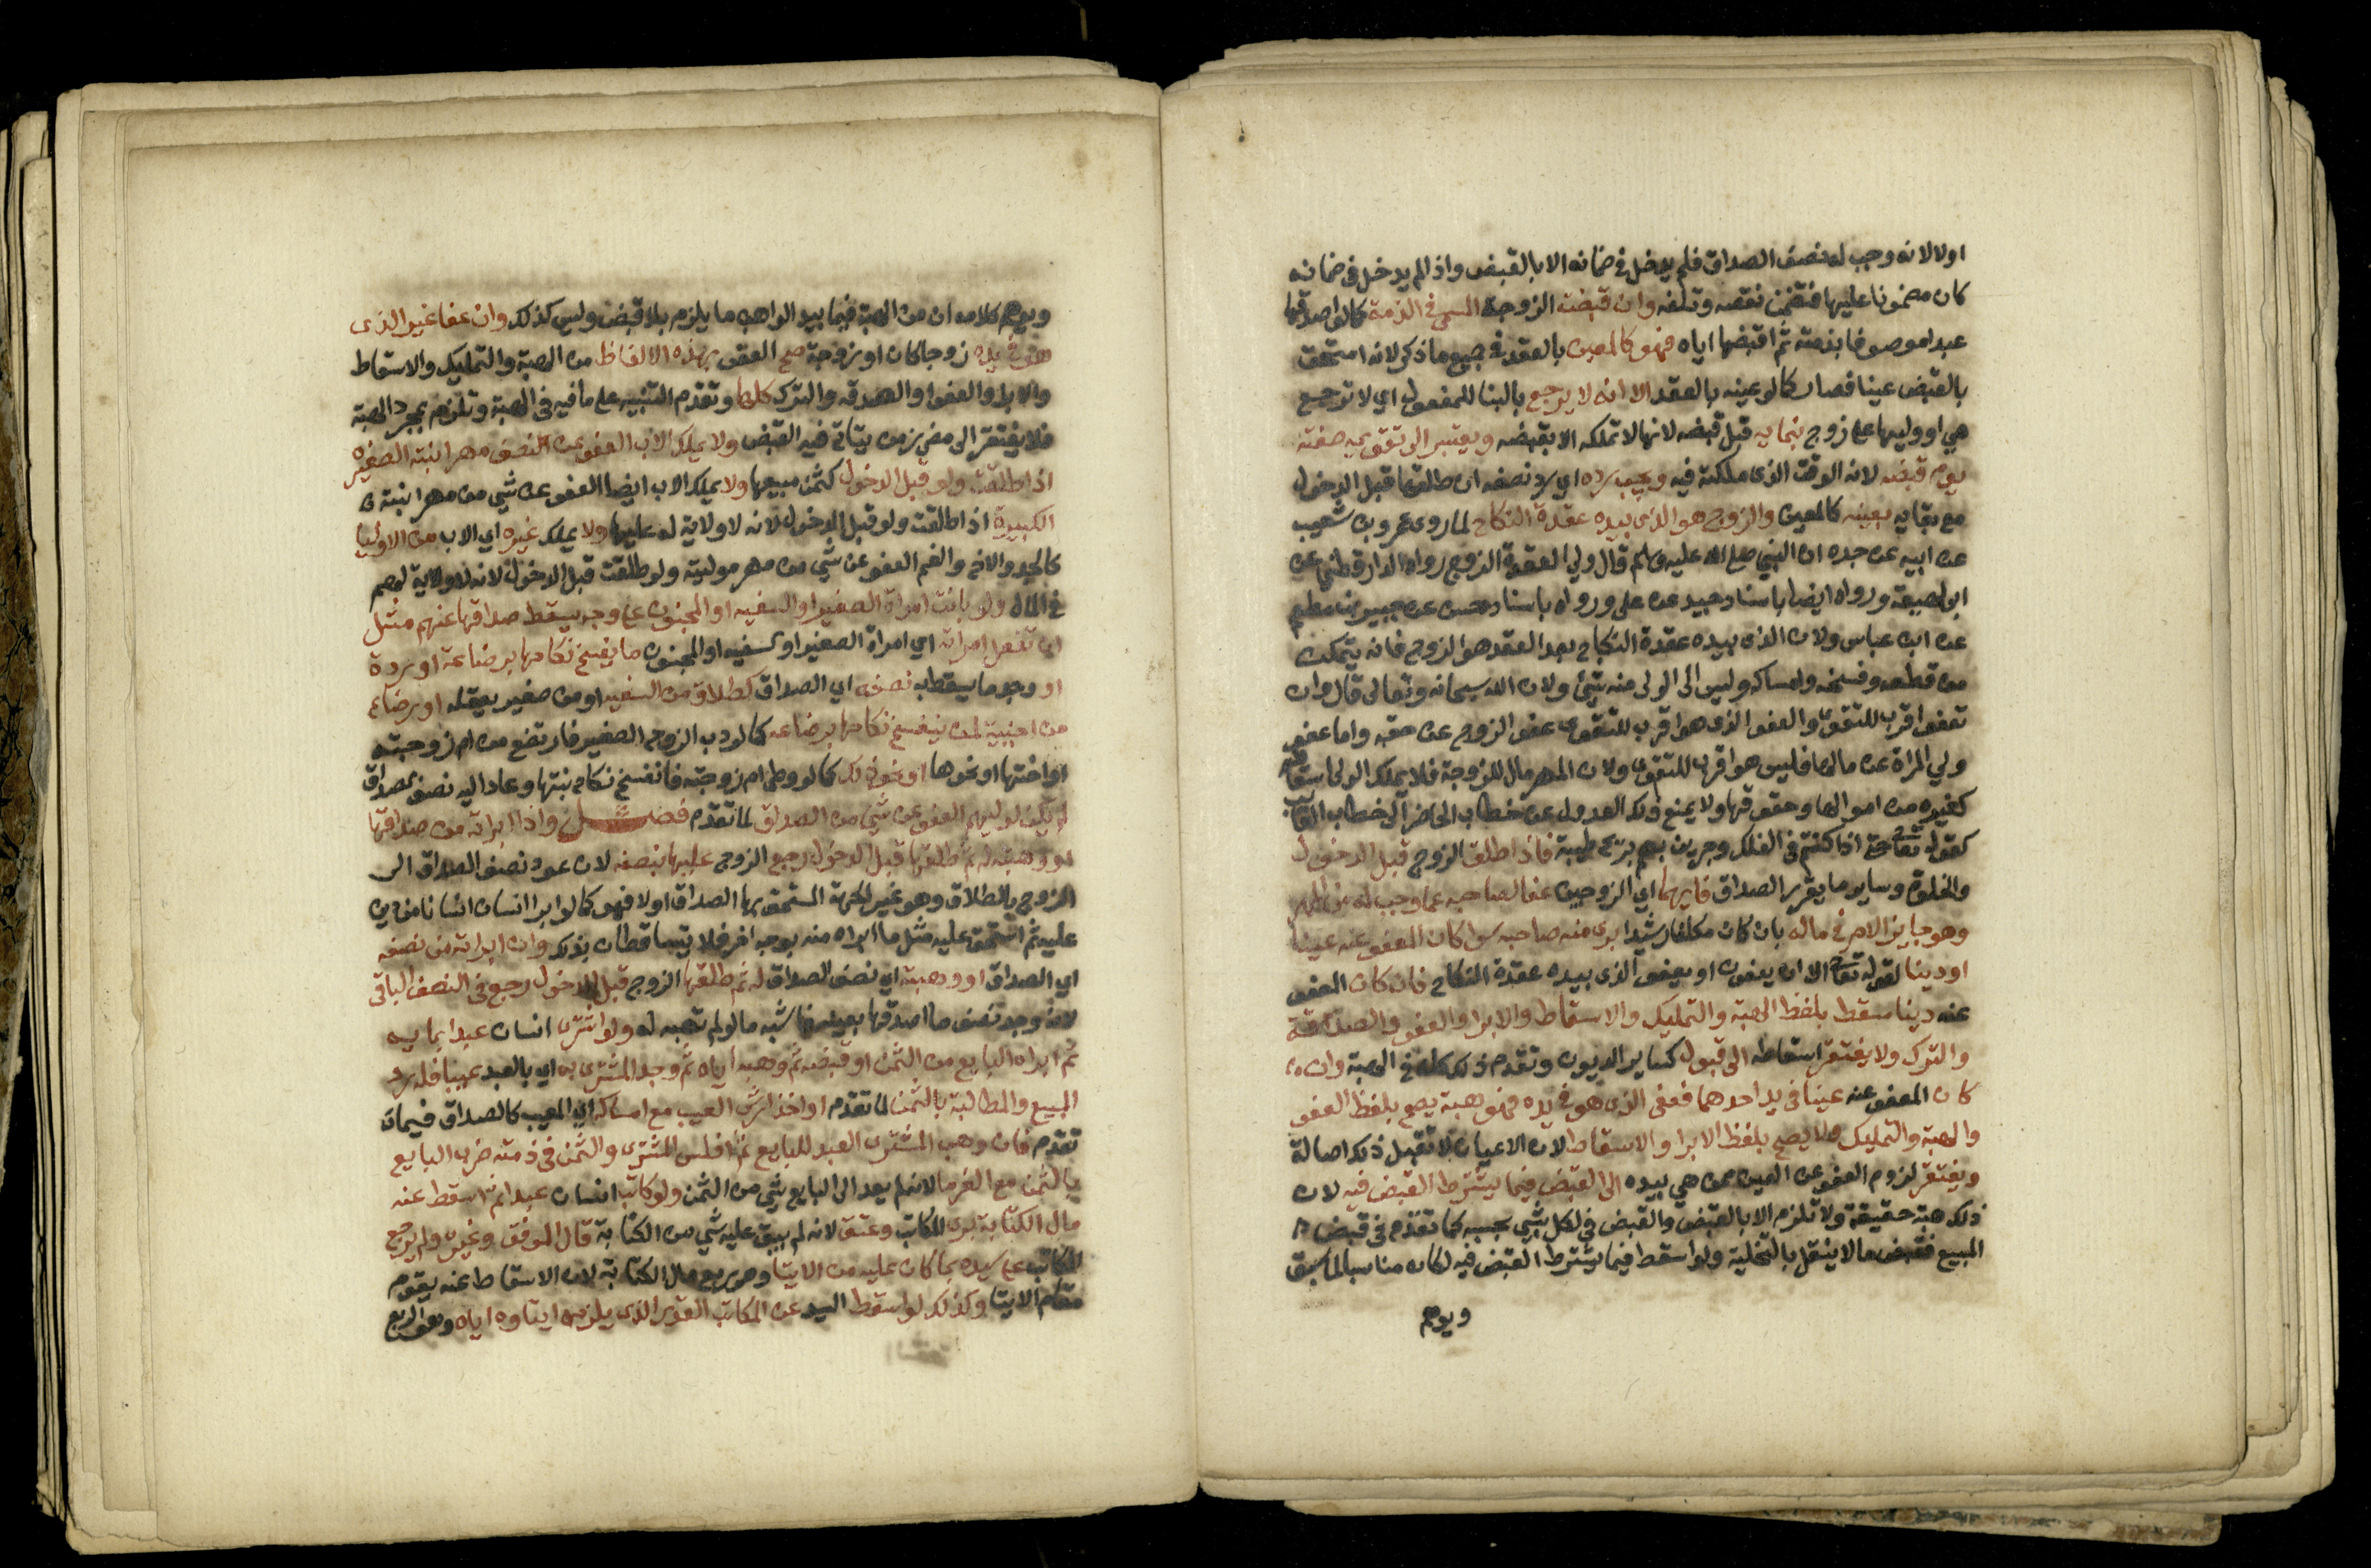 اولا لانه وجب له نصف الصداق فلم يدخل في ضمانه الا بالقبض واذا لم يدخل في ضمانه
كان مضمونا عليها فتضمن نقصه وتلفه وان قبضت الزوجة المسمى في الذمة كما لو اصدقها
عبدا موصوفا بذمته ثم اقبضها اياه فهو كالمعين بالعقد في جميع ما ذكر لانه استحق
بالقبض عينا فصار كما لو عينه بالعقد الا انه لا يرجع بالبنا للمفعول اي لا ترجع
هي او وليها على زوج بنمايه قبل قبضه لانها لا تملكه الا بقبضه ويعتبر في تقويمه صفته
يوم قبضه لانه الوقت الذي ملكته فيه ويجب رده اي رد نصفه ان طلقها قبل الدخول
مع بقايه بعينه كالمعين والزوج هو الذي بيده عقدة النكاح لما روى عمرو بن شعيب
عن ابيه عن جده ان النبي صلى الله عليه وسلم قال ولي العقدة الزوج رواه الدارقطني عن
ابن لهيعة ورواه ايضا باسناد جيد عن على ورواه باسناد حسن عن جبير بن مطعم
عن ابن عباس ولان الذي بيده عقدة النكاح بعد العقد هو الزوج فانه يتمكن
من قطعه وفسخه وامساكه وليس الى الولي منه شئ ولان الله سبحانه وتعالى قال وان
تعفوا اقرب للتقوى والعفو الذي هو اقرب للتقوى عفو الزوج عن حقه واما عفو
ولي المراة عن مالها فليس هو اقرب للتقوى ولان المهر مال للزوجة فلا يملك الولي اسقاطه
كغيره من اموالها وحقوقها ولا يمنع ذلك العدول عن خطاب الحاضر الى خطاب الغايب
كقوله تعالى حتى اذا كنتم في الفلك وجرين بهم بريح طيبة فاذا طلق الزوج قبل الدخول
والخلوة وساير ما يقرر الصداق فايهما اي الزوجين عفا لصاحبه عما وجب له من المهر
وهو جايز الامر في ماله بان كان مكلفا رشيدا بري منه صاحبه سوا كان المعفو عنه عينا
او دينا لقوله تعالى الا ان يعفون او يعفو الذي بيده عقدة النكاح فان كان العفو
عنه دينا سقط بلفظ الهبة والتمليك والاسقاط والابرا والعفو والصدقة
والترك ولا يفتقر اسقاطه الى قبول كساير الديون وتقدم ذلك كله في الهبة وان
كان المعفو عنه عينا في يد احدهما فعفى الذي هو في يده فهو هبة يصح بلفظ العفو
والهبة والتمليك ولا يصح بلفظ الابرا والاسقاط لان الاعيان لا تقبل ذلك اصالة
ويفتقر لزوم العفو عن العين ممن هي بيده الى القبض فيما يشترط القبض فيه لان
ذلك هبة حقيقة ولا تلزم الا بالقبض والقبض في كل شي بحسبه كما تقدم في قبض
المبيع فقبض ما لا ينقل بالتخلية ولو اسقط فيما يشترط القبض فيه لكان مناسبا لما سبق
ويوهم
ويوهم كلامه ان من الهبة فيما بيد الواهب ما يلزم بلا قبض وليس كذلك وان عفا غير الذى
هو في يده زوجا كان او زوجة صح العفو بهذه الالفاظ من الهبة والتمليك والاسقاط
والابرا والعفو والصدقه والترك كلها وتقدم التنبيه على ما فيه في الهبة وتلزم بمجرد الهبة
فلا يفتقر الى مضي زمن يتاتى فيه القبض ولا يملك الاب العفو عن النصف مهر ابنته الصغيرة
اذا طلقت ولو قبل الدخول كثمن مبيعها ولا يملك الاب ايضا العفو عن شي من مهر ابنته
الكبيرة اذا طلقت ولو قبل الدخول لانه لا ولاية له عليها ولا يملك غيره اي الاب من الاوليا
كالجد والاخ والعم العفو عن شي من مهر موليته ولو طلقت قبل الدخول لانه لا ولاية لهم
في المال ولو بانت امراة الصغير او السفيه او المجنون على وجه يسقط صداقها عنهم مثل
ان تفعل امراته اي امراة الصغير او السفيه او المجنون ما يفسخ نكاحها برضاعة او ردة
او وجه ما يسقط به نصفه اي الصداق كطلاق من السفيه او من صغير يعقله او رضاع
من اجنبية لمن ينفسخ نكاحها برضاعه كما لو دب الزوج الصغير فارتضع من ام زوجته
او اختها او نحوها او نحو ذلك كما لو وطئ ام زوجته فانفسخ نكاح بنتها وعاد اليه نصف صداق
لم يكن لوليهم العفو عن شي من الصداق لما تقدم فصل واذا ابراته من صداقها
او وهبته له ثم طلقها قبل الدخول رجع الزوج عليها بنصفه لان عود نصف الصداق الى
الزوج بالطلاق وهو غير الجهة المستحق بها الصداق اولا فهو كما لو ابرا انسان انسانا من دين
عليه ثم استحق عليه مثل ما ابراه منه بوجه اخر فلا يتساقطان بذلك وان ابراته من نصفه
اي الصداق او وهبته اي نصف الصداق له ثم طلقها الزوج قبل الدخول رجع في النصف الباقي
لانه وجد نصف ما اصدقها بعينه اشبه ما لو لم تهبه له ولو اشترى انسان عبدا بماية
ثم ابراه البايع من الثمن او قبضه ثم وهبه اياه ثم وجد المشتري به اي بالعبد عيبا فله رد
المبيع والمطالبة بالثمن لما تقدم او اخذ ارش العيب مع امساكه اي المعيب كالصداق فيما
تقدم فان وهب المشتري العبد للبايع ثم افلس المشتري والثمن في ذمته ضرب البايع
بالثمن مع الغرما لانه لم يعد الى البايع شي من الثمن ولو كاتب انسان عبدا ثم اسقط عنه
مال الكتابة بري المكاتب وعتق لانه لم يبق عليه شي من الكتابة قال الموفق وغيره ولم يرجع
المكاتب على سيده بما كان عليه من الايتا وهو ربع مال الكتابة لان الاسقاط عنه يقوم
مقام الايتا وكذلك لو اسقط السيد عن المكاتب القدر الذي يلزمه ايتاوه اياه وهو الربع